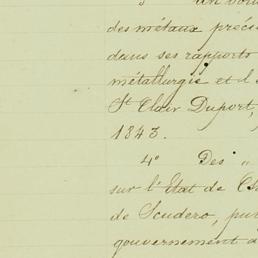 3° Un vol
des métaux préci
dans ses rapports
métallurgie et l
St Clair Duport,
1843.
4° Des "
sur l'Etat de C
de Scudero, pu
gouvernement d